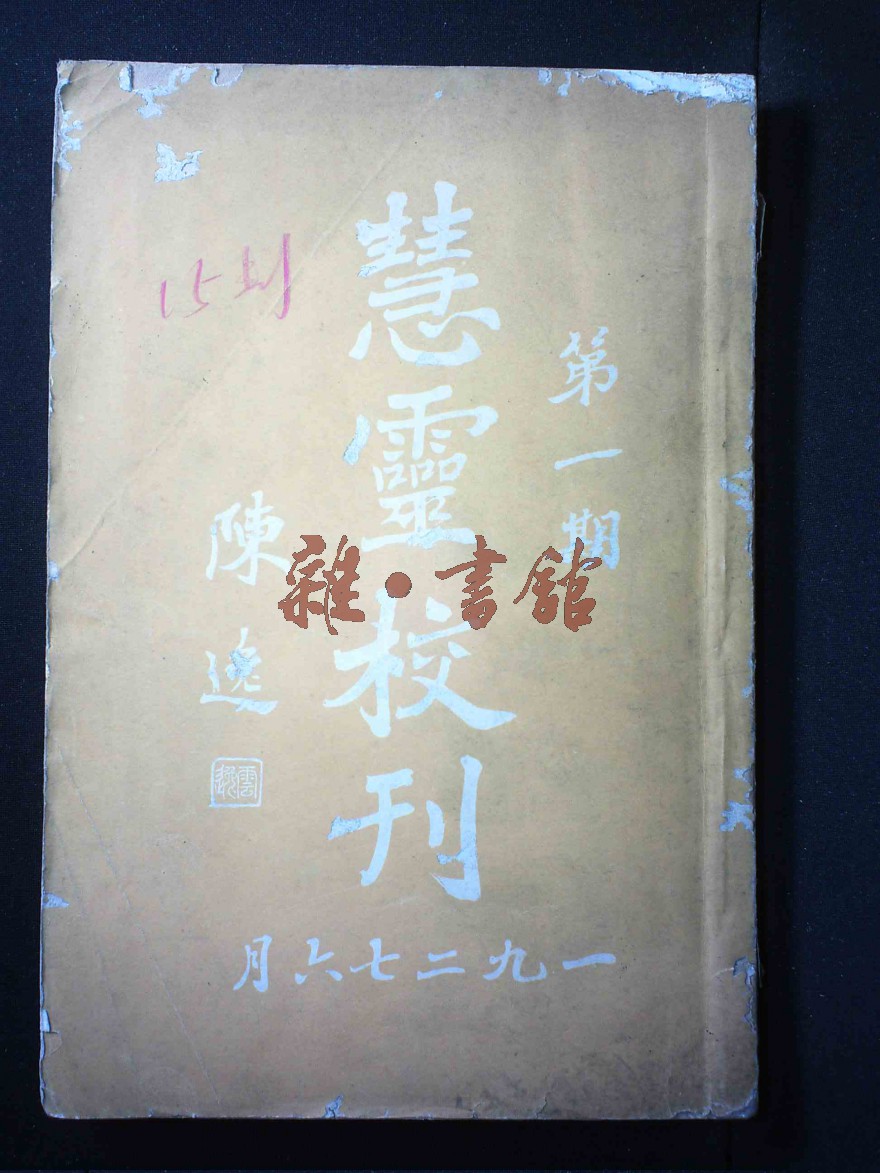 慧靈校刊
第一期
陳逸
一九二七六月
雜·書館